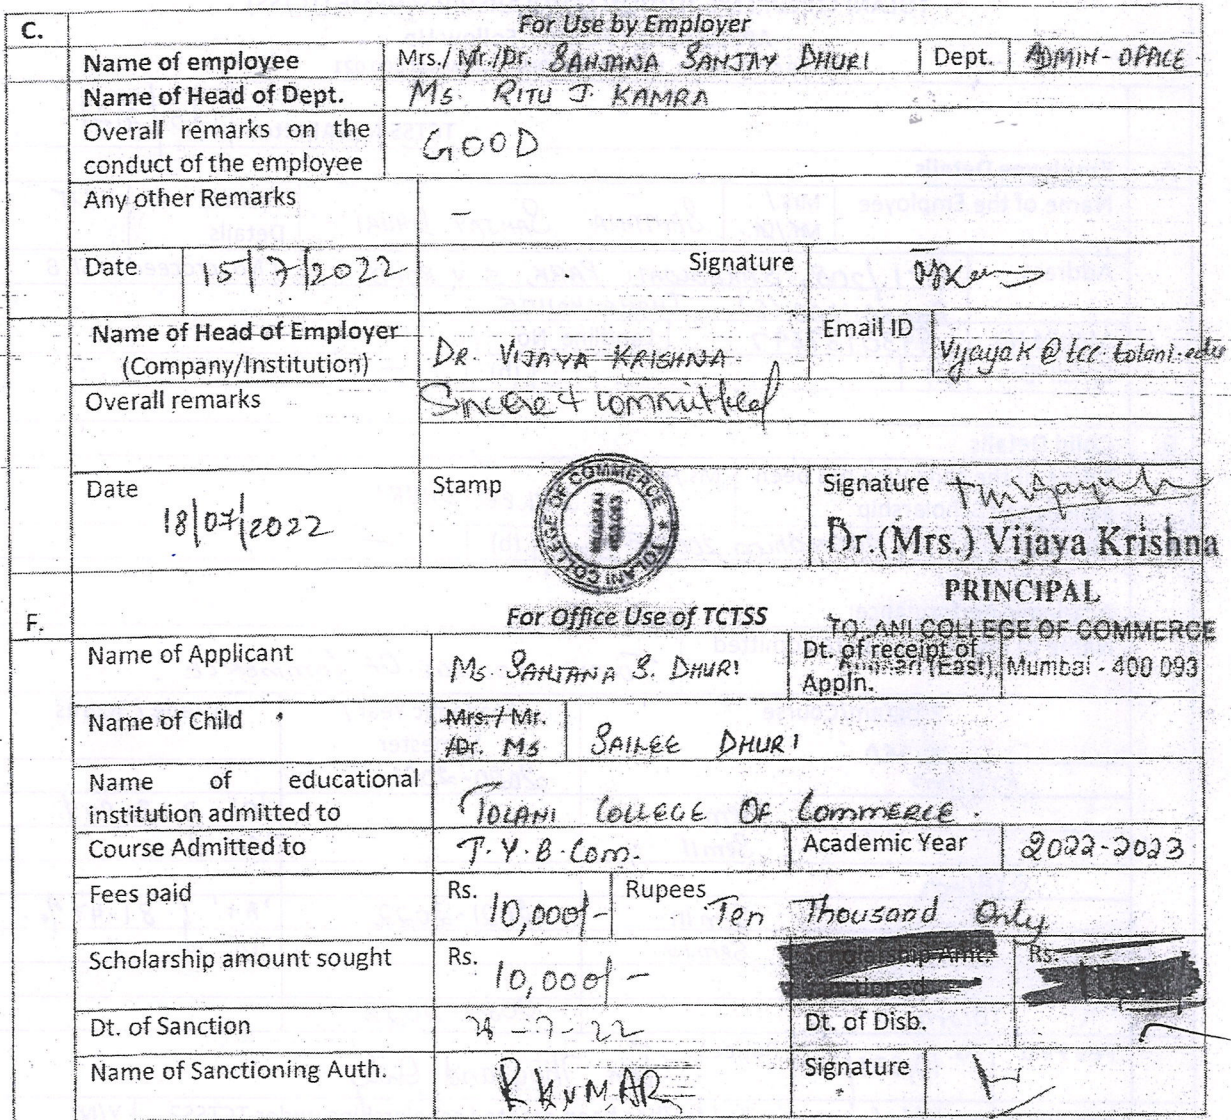 C. For Use by Employer
Name of employee Mrs./ Mr./Dr. SANJANA SANJAY DHURI Dept. ADMIN-OFFICE
Name of Head of Dept. MS. RITU J. KAMRA
Overall remarks on the
conduct of the employee GOOD
Any other Remarks –
Date 15/7/2022 Signature
Name of Head of Employer
(Company/Institution) DR VIJAYA KRISHNA Email ID vijayak@tcc.tolani.edu
Overall remarks Sincere & committed
Date 18/07/2022 Stamp TOLANI COLLEGE OF COMMERCE Signature
Dr.(Mrs.) Vijaya Krishna
PRINCIPAL
TOLANI COLLEGE OF COMMERCE
Andheri (East), Mumbai - 400 093
F. For Office Use of TCTSS
Name of Applicant MS SANJANA S. DHURI Dt. of receipt of
Appln.
Name of Child Mrs./ Mr.
/Dr. MS SAILEE DHURI
Name of educational
institution admitted to TOLANI COLLEGE OF COMMERCE.
Course Admitted to T.Y.B.Com. Academic Year 2022-2023
Fees paid Rs. 10,000/- Rupees Ten Thousand Only
Scholarship amount sought Rs. 10,000/- Scholarship Amt.
sanctioned Rs.
Dt. of Sanction 28-7-22 Dt. of Disb.
Name of Sanctioning Auth. R KUMAR Signature